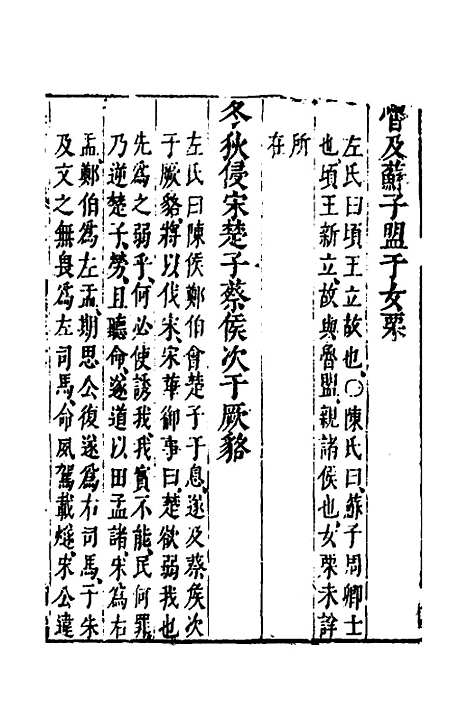 及蘇子盟于女栗
左氏曰頃王立故也〇陳氏曰蘇子周卿士
也頃王新立故與魯盟親諸侯也女栗未詳
所
在
冬狄侵宋楚子蔡侯次于厥貉
左氏曰陳侯鄭伯會楚子于息遂及蔡侯次
于厥貉將以伐宋宋華御事曰楚欲弱我也
先為之弱乎何必使誘我我實不能民何罪
乃逆楚子勞且聽命遂道以田孟諸宋為右
盂鄭伯為左盂期思公復遂為右司馬子朱
及文之無畏為左司馬命夙駕載燧宋公違